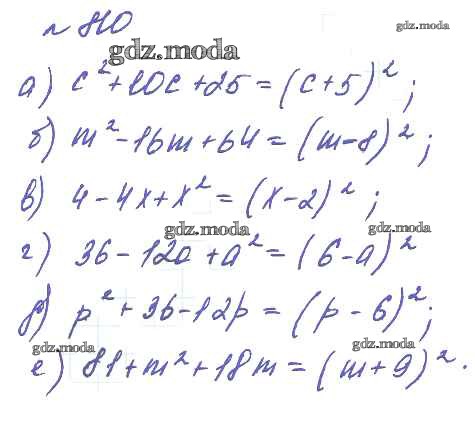 № 810
gdz.moda
gdz.moda
а) c² + 10c + 25 = (c + 5)²;
б) m² - 16m + 64 = (m - 8)²;
в) 4 - 4x + x² = (x - 2)²;
gdz.moda
gdz.moda
г) 36 - 12a + a² = (6 - a)²
д) p² + 36 - 12p = (p - 6)²;
gdz.moda
gdz.moda
е) 81 + m² + 18m = (m + 9)².